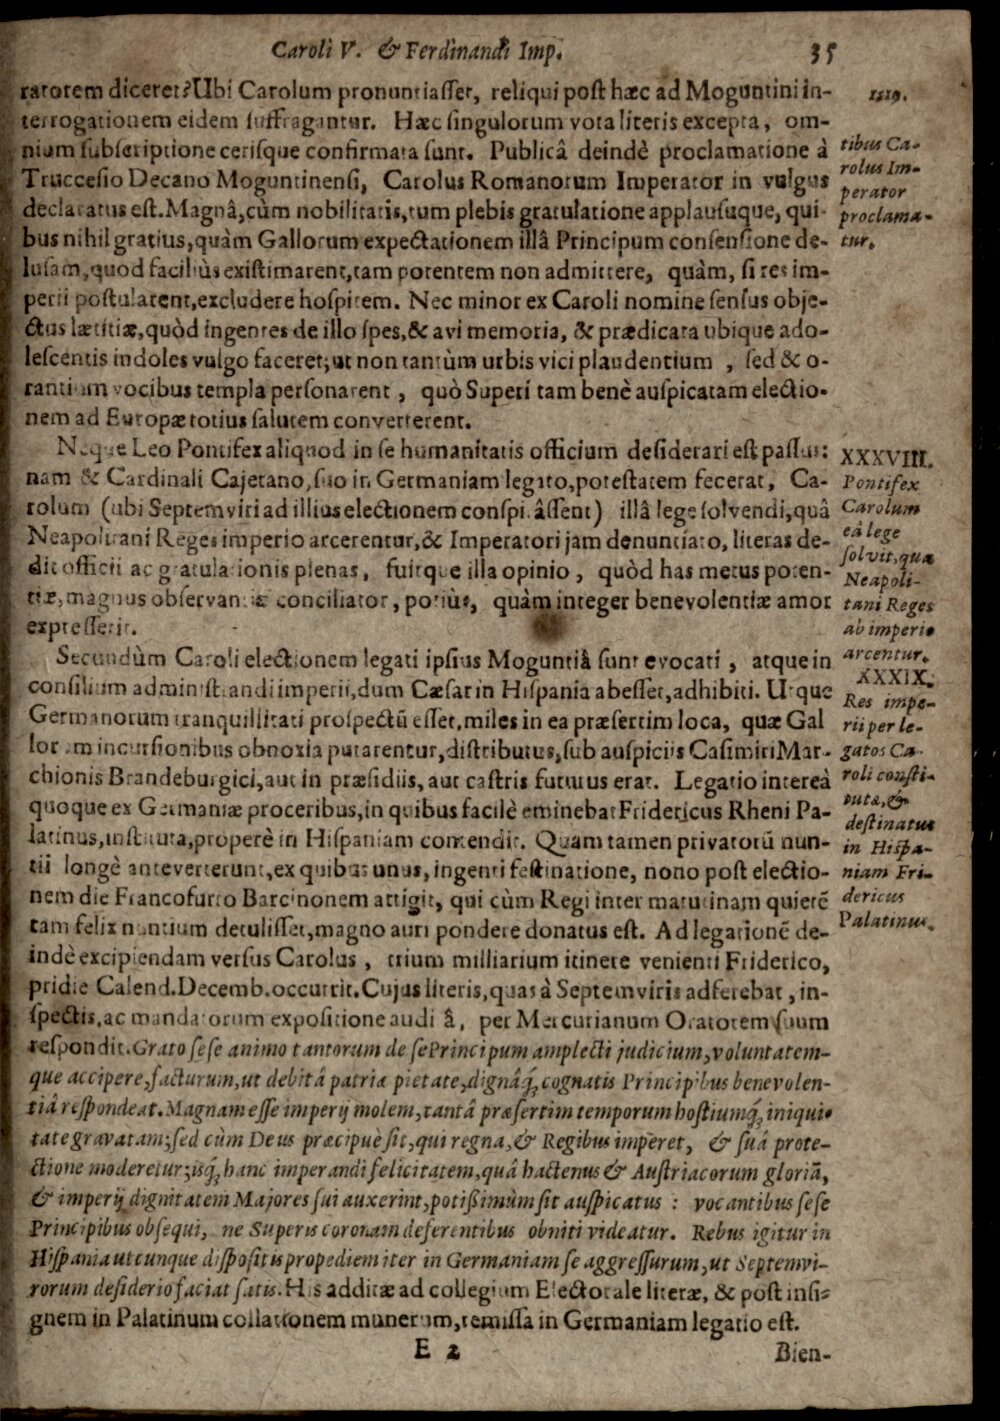 Caroli V. & Ferdinandi Imp. 35
ratorem diceret? Ubi Carolum pronuntiasſet, reliqui poſt hæc ad Moguntini in-
terrogationem eidem ſuffragantur. Hæc ſingulorum vota literis excepta, om-
nium ſubſcriptione ceriſque confirmata ſunt. Publicâ deindè proclamatione à
Trucceſio Decano Moguntinenſi, Carolus Romanorum Imperator in vulgus
declaratus eſt. Magnâ, cùm nobilitatis, tum plebis gratulatione applauſuque, qui-
bus nihil gratius, quàm Gallorum expectationem illâ Principum conſenſione de-
luſam, quod faciliùs exiſtimarent, tam potentem non admittere, quàm, ſi res im-
perii poſtularent, excludere hoſpitem. Nec minor ex Caroli nomine ſenſus obje-
ctus lætitiæ, quòd ingentes de illo ſpes, & avi memoria, & prædicata ubique ado-
leſcentis indoles vulgo faceret; ut non tantùm urbis vici plaudentium, ſed & o-
rantium vocibus templa perſonarent, quò Superi tam benè auſpicatam electio-
nem ad Europæ totius ſalutem converterent.
Neque Leo Pontifex aliquod in ſe humanitatis officium deſiderari eſt paſſus:
nam & Cardinali Cajetano, ſuo in Germaniam legato, poteſtatem fecerat, Ca-
rolum (ubi Septemviri ad illius electionem conſpirâſſent) illâ lege ſolvendi, quâ
Neapolitani Reges imperio arcerentur, & Imperatori jam denuntiato, literas de-
dit officii ac gratulationis plenas, fuitque illa opinio, quòd has metus poten-
tiæ, magnus obſervantiæ conciliator, potiùs, quàm integer benevolentiæ amor
expreſſerit.
Secundùm Caroli electionem legati ipſius Moguntiâ ſunt evocati, atque in
conſilium adminiſtrandi imperii, dum Cæſar in Hiſpania abeſſet, adhibiti. Utque
Germanorum tranquillitati proſpectū eſſet, miles in ea præſertim loca, quæ Gal
lorum incurſionibus obnoxia putarentur, diſtributus, ſub auſpiciis Caſimiri Mar-
chionis Brandeburgici, aut in præſidiis, aut caſtris futurus erat. Legatio intereà
quoque ex Germaniæ proceribus, in quibus facilè eminebat Fridericus Rheni Pa-
latinus, inſtituta, properè in Hiſpaniam contendit. Quam tamen privatorū nun-
tii longè anteverterunt, ex quibus unus, ingenti feſtinatione, nono poſt electio-
nem die Francofurto Barcinonem attigit, qui cùm Regi inter matutinam quietē
tam felix nuntium detuliſſet, magno auri pondere donatus eſt. Ad legationē de-
indè excipiendam verſus Carolus, trium milliarium itinere venienti Friderico,
pridie Calend. Decemb. occurrit. Cujus literis, quas à Septemviris adferebat, in-
ſpectis, ac mandatorum expoſitione auditâ, per Mercurianum Oratorem ſuum
reſpondit. Grato ſeſe animo tantorum de ſe Principum amplecti judicium, voluntatem-
que accipere, facturum, ut debitâ patriæ pietate, dignâq́; cognatis Principibus benevolen-
tiâ reſpondeat. Magnam eſſe imperij molem, tantâ præſertim temporum hoſtiumq́; iniqui-
tate gravatam; ſed cùm Deus præcipuè ſit, qui regna, & Regibus imperet, & ſuâ prote-
ctione moderetur; iſq́; hanc imperandi felicitatem, quâ hactenus & Auſtriacorum gloriā,
& imperij dignitatem Majores ſui auxerint, potißimùm ſit auſpicatus: vocantibus ſeſe
Principibus obſequi, ne Superis coronam deferentibus obniti videatur. Rebus igitur in
Hiſpania utcunque diſpoſitis propediem iter in Germaniam ſe aggreſſurum, ut Septemvi-
rorum deſiderio faciat ſatis. His additæ ad collegium Electorale literæ, & poſt inſi-
gnem in Palatinum collationem munerum, remiſſa in Germaniam legatio eſt.
E 2 Bien-
1519.
tibus Ca-
rolus Im-
perator
proclama-
tur.
XXXVIII.
Pontifex
Carolum
eâ lege
ſolvit, quæ
Neapoli-
tani Reges
ab imperio
arcentur.
XXXIX.
Res impe-
rii per le-
gatos Ca-
roli conſti-
tutæ, &
deſtinatus
in Hiſpa-
niam Fri-
dericus
Palatinus.